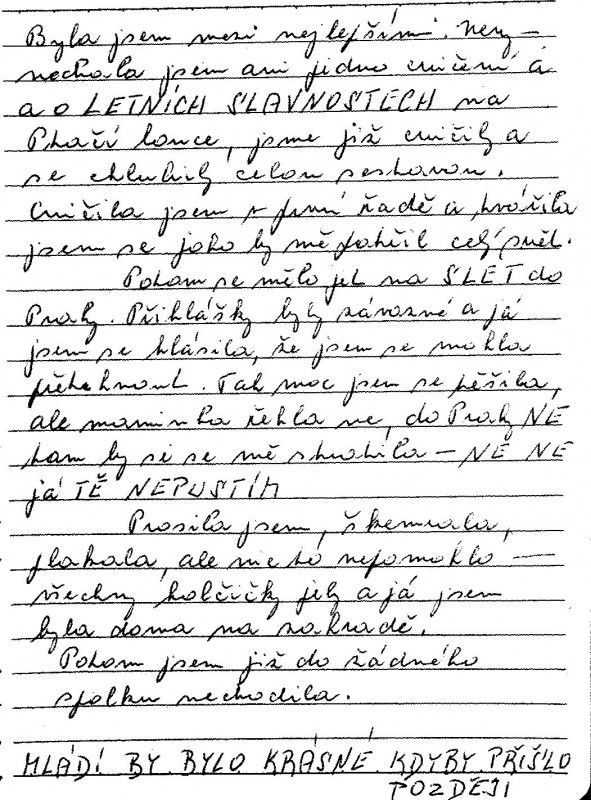 Byla jsem mezi nejlepšími. Nevy-
nechala jsem ani jedno cvičení a
a o LETNÍCH SLAVNOSTECH na
Ptačí louce, jsme již cvičily a
se chlubily celou sestavou.
Cvičila jsem v první řadě a tvářila
jsem se jako by mě patřil celý svět.
Potom se mělo jet na SLET do
Prahy. Přihlášky byly závazné a já
jsem se hlásila, že jsem se mohla
přetrhnout. Tak moc jsem se těšila,
ale maminka řekla ne, do Prahy NE
tam by si se mě ztratila — NE NE
já TĚ NEPUSTÍM
Prosila jsem, škemrala,
plakala, ale nic to nepomohlo —
všechny holčičky jely a já jsem
byla doma na zahradě.
Potom jsem již do žádného
spolku nechodila.
MLÁDÍ BY BYLO KRÁSNÉ KDYBY PŘIŠLO
POZDĚJI